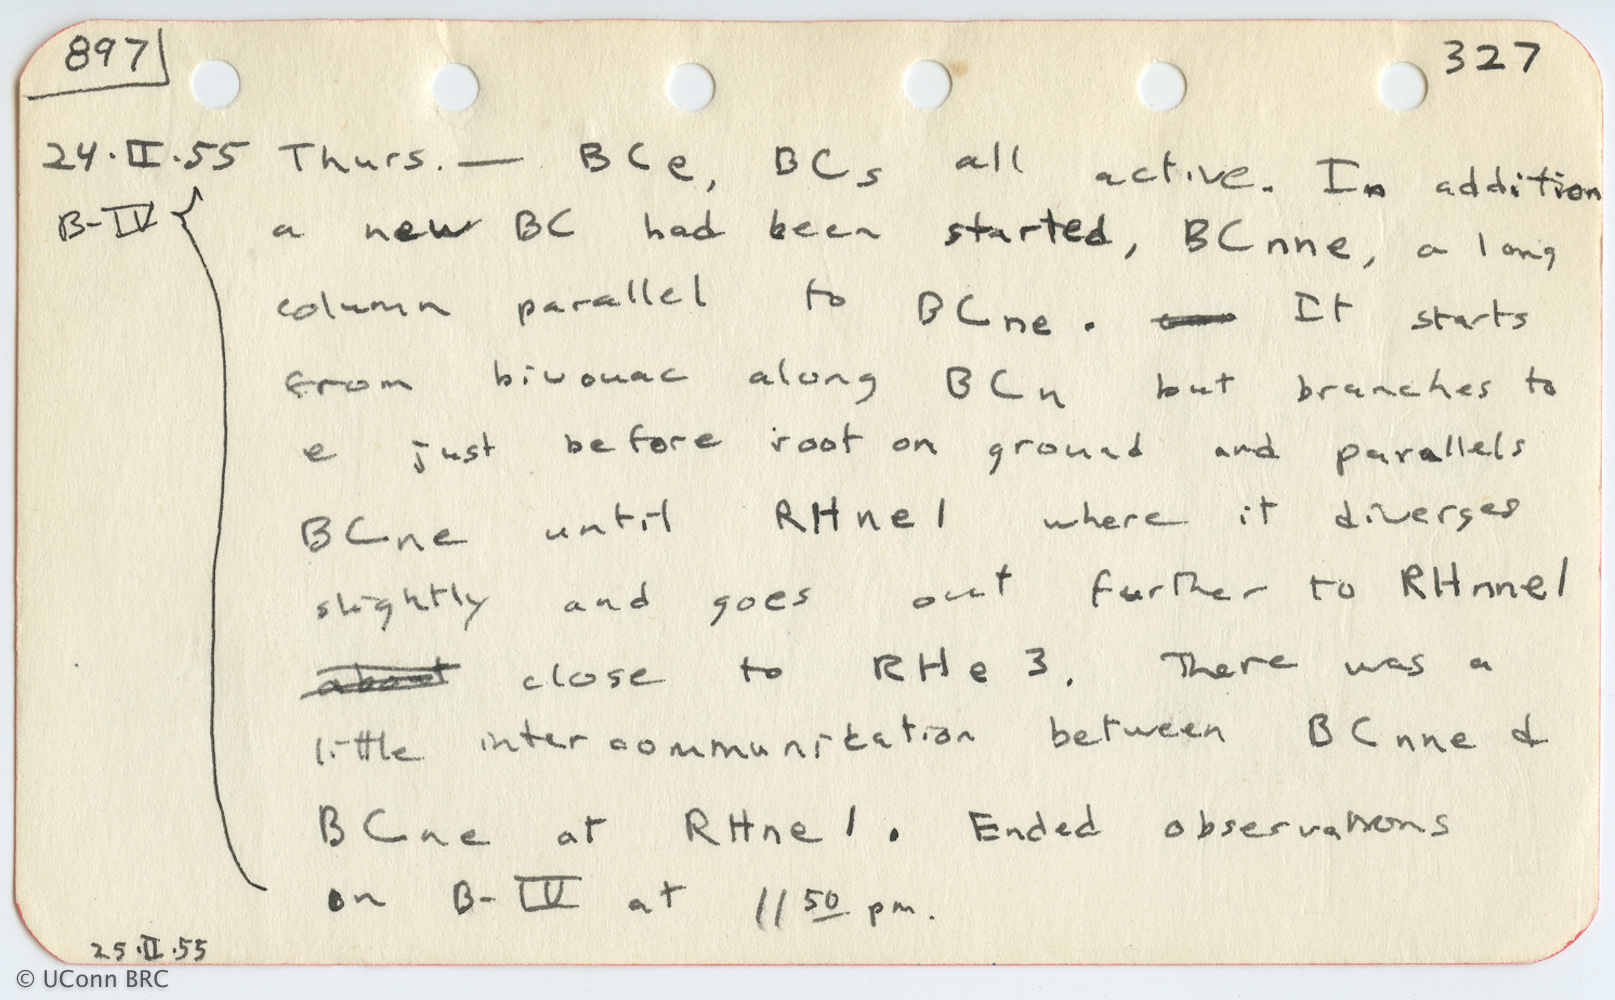 897 327
24·II·55 Thurs. — BCe, BCs all active. In addition
B-IV a new BC had been started, BCnne, a long
column parallel to BCne. It starts
from bivouac along BCn but branches to
e just before root on ground and parallels
BCne until RHne1 where it diverges
slightly and goes out further to RHnne1
about close to RHe3. There was a
little intercommunication between BCnne &
BCne at RHne1. Ended observations
on B-IV at 11 50 pm.
25·II·55
© UConn BRC